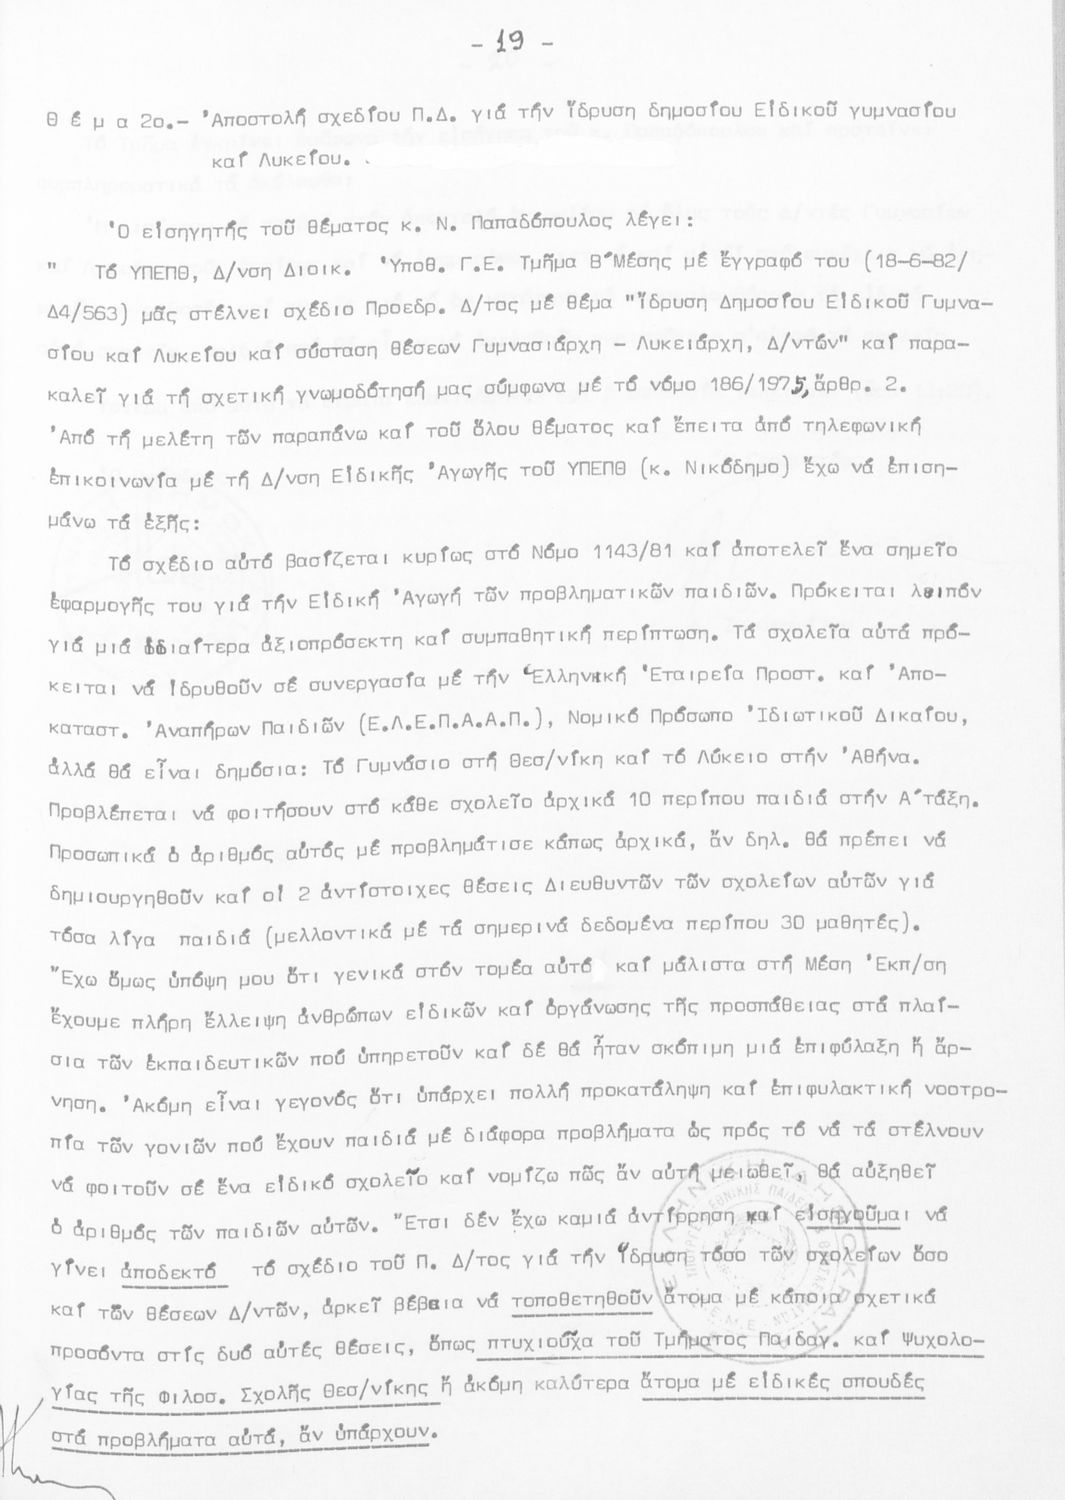 - 19 -
Θ έ μ α 2ο.- Ἀποστολή σχεδίου Π.Δ. γιά τήν ἵδρυση δημοσίου Εἰδικοῦ γυμνασίου
καί Λυκείου.
Ὁ εἰσηγητής τοῦ θέματος κ. Ν. Παπαδόπουλος λέγει:
" Τό ΥΠΕΠΘ, Δ/νση Διοικ. Ὑποθ. Γ.Ε. Τμῆμα Β΄Μέσης μέ ἔγγραφό του (18-6-82/
Δ4/563) μᾶς στέλνει σχέδιο Προεδρ. Δ/τος μέ θέμα "ἵδρυση Δημοσίου Εἰδικοῦ Γυμνα-
σίου καί Λυκείου καί σύσταση θέσεων Γυμνασιάρχη - Λυκειάρχη, Δ/ντῶν" καί παρα-
καλεῖ γιά τή σχετική γνωμοδότησή μας σύμφωνα μέ τό νόμο 186/1975, ἄρθρ. 2.
Ἀπό τή μελέτη τῶν παραπάνω καί τοῦ ὅλου θέματος καί ἔπειτα ἀπό τηλεφωνική
ἐπικοινωνία μέ τή Δ/νση Εἰδικῆς Ἀγωγῆς τοῦ ΥΠΕΠΘ (κ. Νικόδημο) ἔχω νά ἐπιση-
μάνω τά ἑξῆς:
Τό σχέδιο αὐτό βασίζεται κυρίως στό Νόμο 1143/81 καί ἀποτελεῖ ἕνα σημεῖο
ἐφαρμογῆς του γιά τήν Εἰδική Ἀγωγή τῶν προβληματικῶν παιδιῶν. Πρόκειται λοιπόν
γιά μιά ἰδιαίτερα ἀξιοπρόσεκτη καί συμπαθητική περίπτωση. Τά σχολεῖα αὐτά πρό-
κειται νά ἱδρυθοῦν σέ συνεργασία μέ τήν Ἑλληνική Ἑταιρεία Προστ. καί Ἀπο-
καταστ. Ἀναπήρων Παιδιῶν (Ε.Λ.Ε.Π.Α.Α.Π.), Νομικό Πρόσωπο Ἰδιωτικοῦ Δικαίου,
ἀλλά θά εἶναι δημόσια: Τό Γυμνάσιο στή Θεσ/νίκη καί τό Λύκειο στήν Ἀθήνα.
Προβλέπεται νά φοιτήσουν στό κάθε σχολεῖο ἀρχικά 10 περίπου παιδιά στήν Α΄τάξη.
Προσωπικά ὁ ἀριθμός αὐτός μέ προβλημάτισε κάπως ἀρχικά, ἄν δηλ. θά πρέπει νά
δημιουργηθοῦν καί οἱ 2 ἀντίστοιχες θέσεις Διευθυντῶν τῶν σχολείων αὐτῶν γιά
τόσα λίγα παιδιά (μελλοντικά μέ τά σημερινά δεδομένα περίπου 30 μαθητές).
Ἔχω ὅμως ὑπόψη μου ὅτι γενικά στόν τομέα αὐτό καί μάλιστα στή Μέση Ἐκπ/ση
ἔχουμε πλήρη ἔλλειψη ἀνθρώπων εἰδικῶν καί ὀργάνωσης τῆς προσπάθειας στά πλαί-
σια τῶν ἐκπαιδευτικῶν πού ὑπηρετοῦν καί δέ θά ἦταν σκόπιμη μιά ἐπιφύλαξη ἤ ἄρ-
νηση. Ἀκόμη εἶναι γεγονός ὅτι ὑπάρχει πολλή προκατάληψη καί ἐπιφυλακτική νοοτρο-
πία τῶν γονιῶν πού ἔχουν παιδιά μέ διάφορα προβλήματα ὡς πρός τό νά τά στέλνουν
νά φοιτοῦν σέ ἕνα εἰδικό σχολεῖο καί νομίζω πῶς ἄν αὐτή μειωθεῖ, θά αὐξηθεῖ
ὁ ἀριθμός τῶν παιδιῶν αὐτῶν. Ἔτσι δέν ἔχω καμιά ἀντίρρηση καί εἰσηγοῦμαι νά
γίνει ἀποδεκτό τό σχέδιο τοῦ Π. Δ/τος γιά τήν ἵδρυση τόσο τῶν σχολείων ὅσο
καί τῶν θέσεων Δ/ντῶν, ἀρκεῖ βέβαια νά τοποθετηθοῦν ἄτομα μέ κάποια σχετικά
προσόντα στίς δυό αὐτές θέσεις, ὅπως πτυχιοῦχα τοῦ Τμήματος Παιδαγ. καί Ψυχολο-
γίας τῆς Φιλοσ. Σχολῆς Θεσ/νίκης ἤ ἀκόμη καλύτερα ἄτομα μέ εἰδικές σπουδές
στά προβλήματα αὐτά, ἄν ὑπάρχουν.